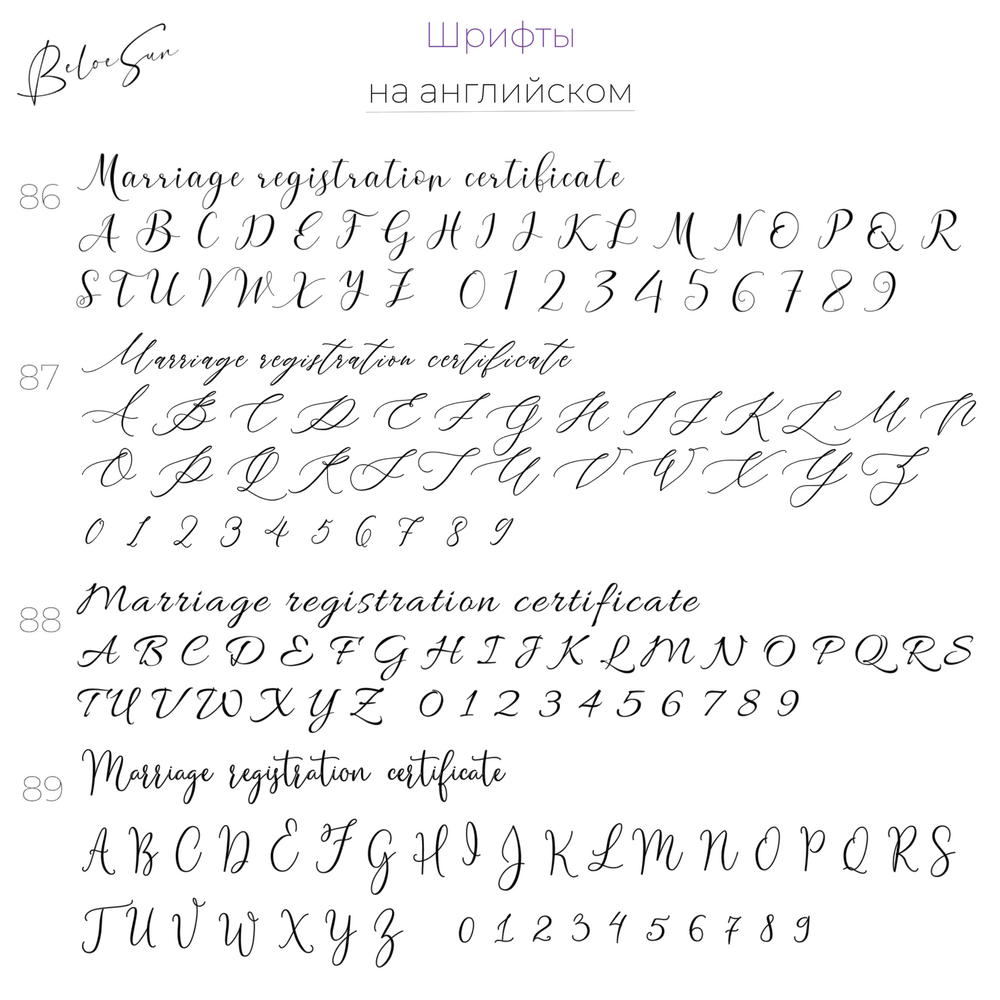 BeloeSun
Шрифты
на английском
86
Marriage registration certificate
A B C D E F G H I J K L M N O P Q R
S T U V W X Y Z 0 1 2 3 4 5 6 7 8 9
87
Marriage registration certificate
A B C D E F G H I J K L M N
O P Q R S T U V W X Y Z
0 1 2 3 4 5 6 7 8 9
88
Marriage registration certificate
A B C D E F G H I J K L M N O P Q R S
T U V W X Y Z 0 1 2 3 4 5 6 7 8 9
89
Marriage registration certificate
A B C D E F G H I J K L M N O P Q R S
T U V W X Y Z 0 1 2 3 4 5 6 7 8 9